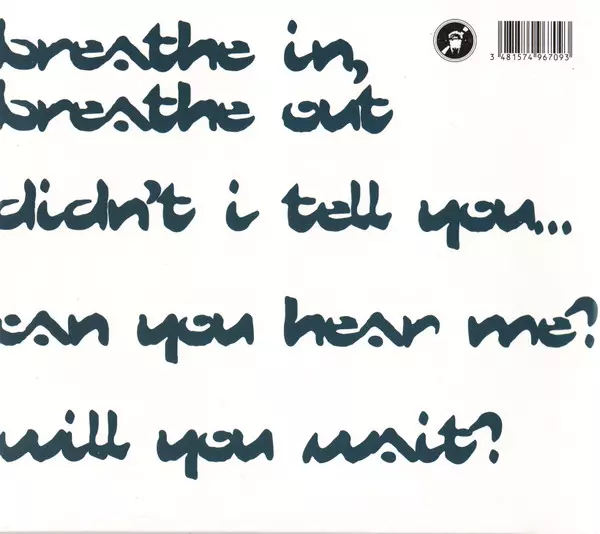 breathe in,
breathe out
didn't i tell you...
can you hear me?
will you wait?
3 481574 967093